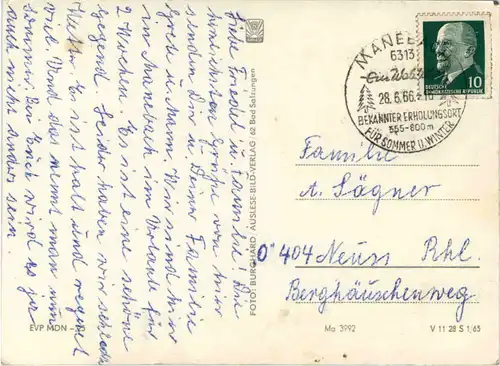 Liebe Friedel u. Familie! Die
herzlichsten Grüße von hier
senden Dir u. Deiner Familie
Wir sind hier
in Manebach im Urlaub für
2 Wochen. Es ist eine schöne
Gegend. Leider haben wir schlech.
Wetter. Es ist kalt und regnet
viel. Und das nennt man nun
Sommer. Bei Euch wird es ja
auch nicht anders sein.
EVP MDN –,25
FOTO: BURGHARD: AUSLESE-BILD-VERLAG · 62 Bad Salzungen
MANEB
6313
28.6.66
BEKANNTER ERHOLUNGSORT
555-800m
FÜR SOMMER U. WINTER
10
DEUTSCHE
DEMOKRATISCHE REPUBLIK
Familie
A. Lägner
404 Neuss Rhl.
Berghäuschenweg
Ma 3992
V 11 28 S 1/65